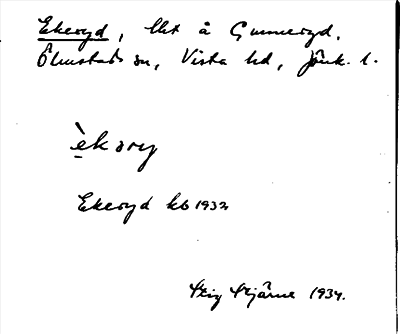 Ekeryd, lht å Gunneryd,
Ölmstads sn, Vista hd, Jönk. l.
èkary
Ekeryd kb 1932
Stig Stjärne 1934.